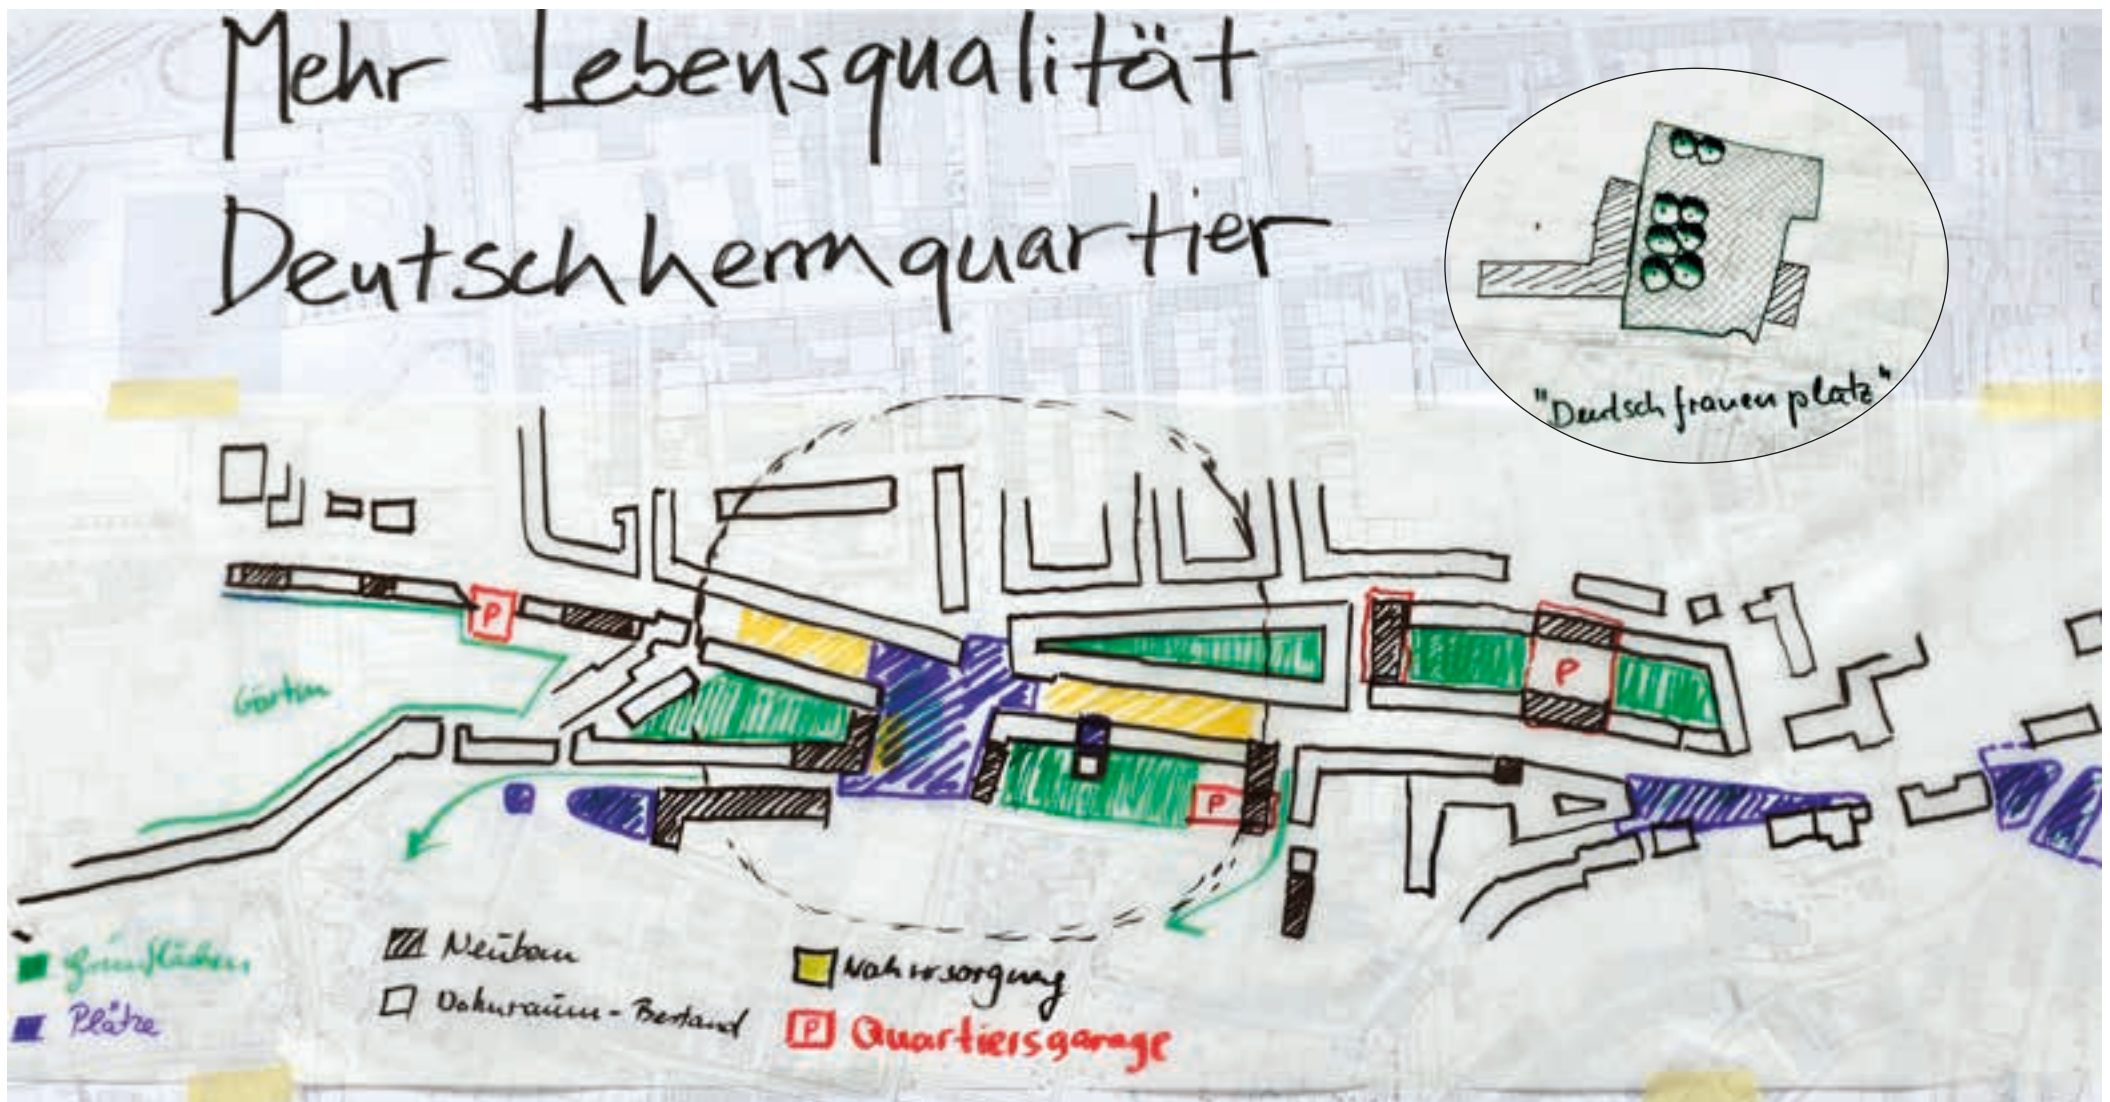 Mehr Lebensqualität
Deutschherrnquartier
"Deutschfrauenplatz"
P
P
Gärten
P
Grünflächen
Plätze
Neubau
Wohnraum-Bestand
Nahversorgung
P Quartiersgarage